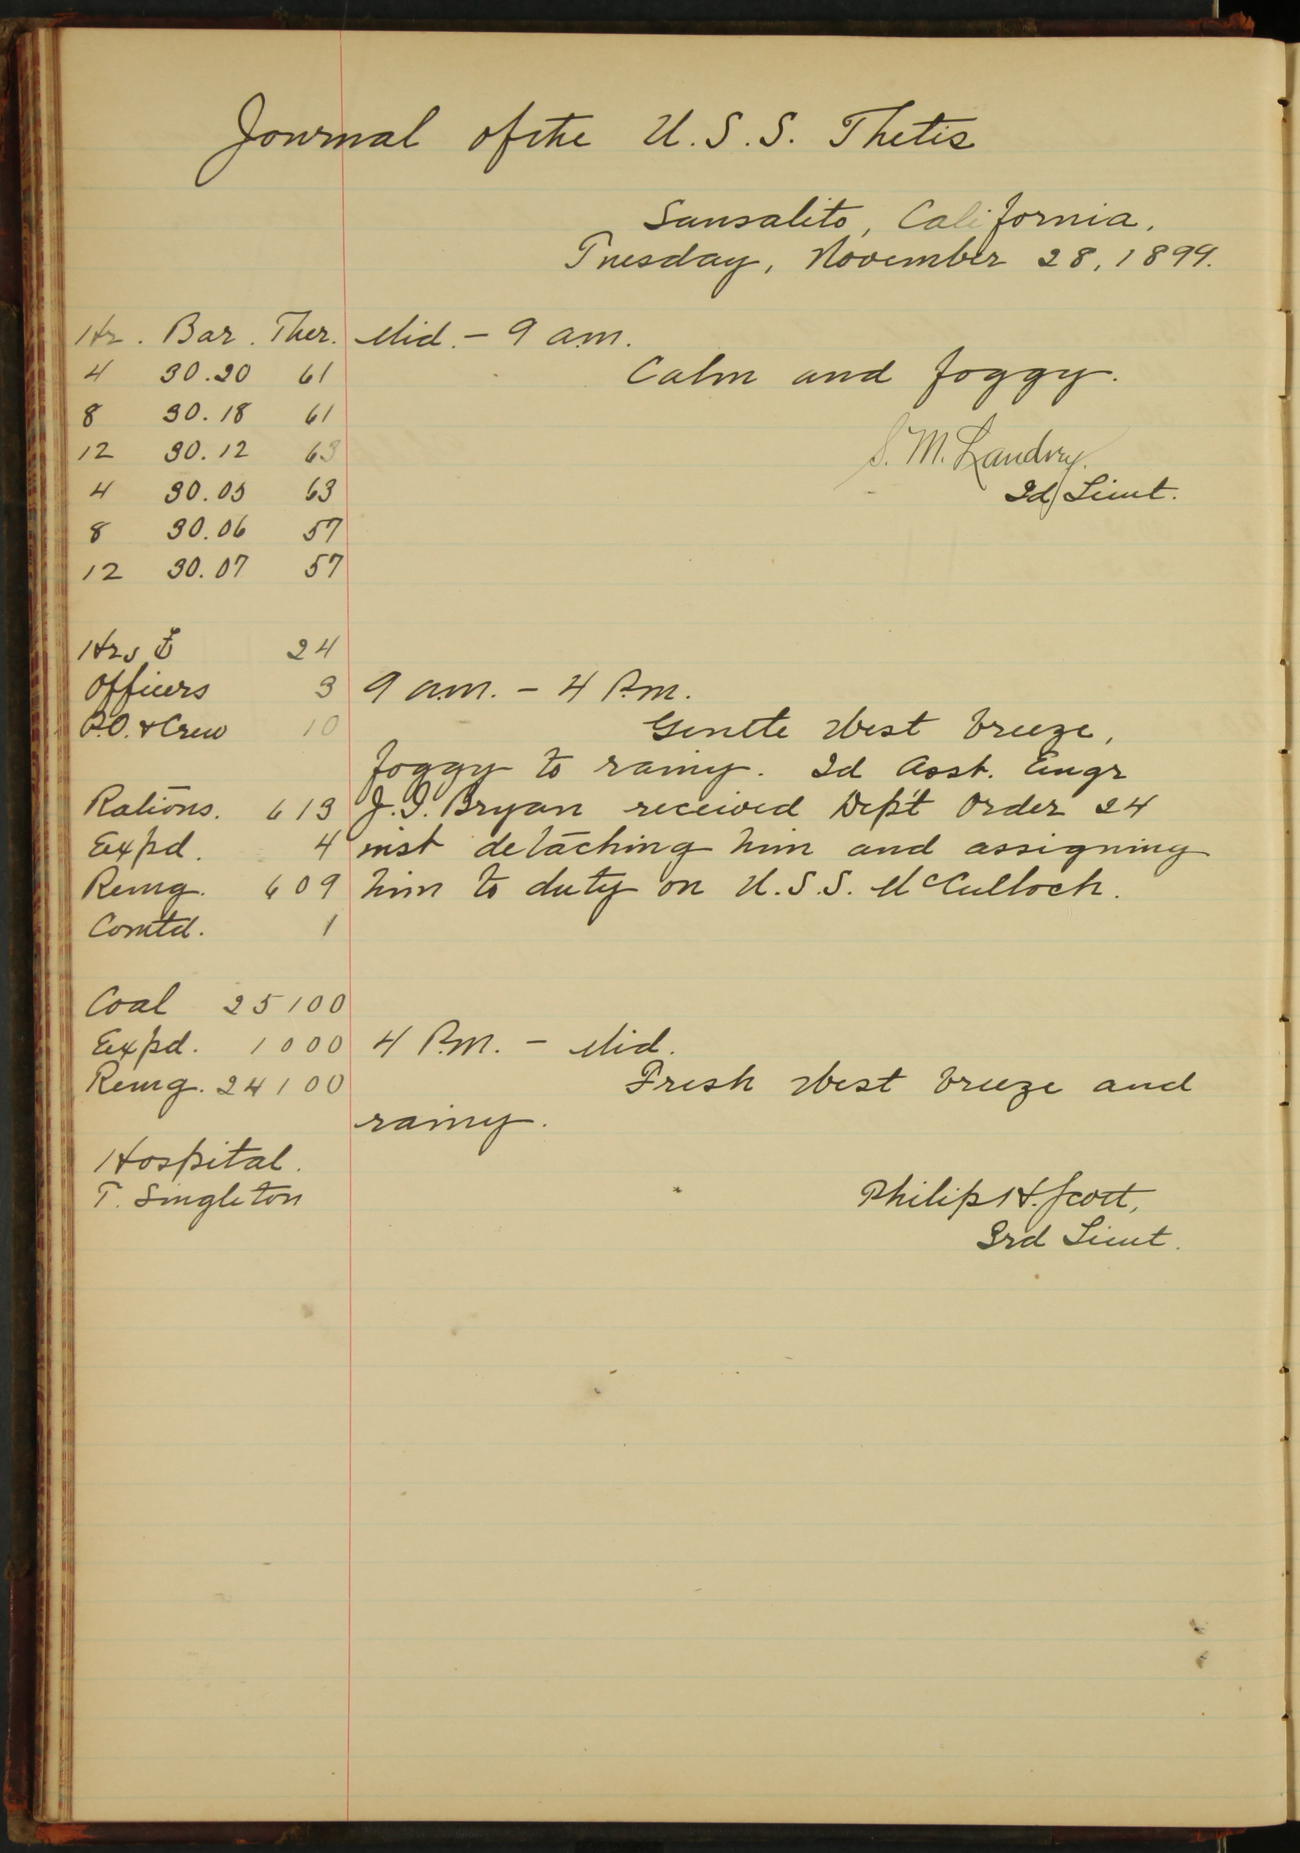 Journal of the U.S.S. Thetis
Sausalito, California.
Tuesday, November 28, 1899.
Hr. Bar. Ther. Mid. - 9 a.m.
4 30.20 61 Calm and foggy.
8 30.18 61
12 30.12 63 S. M. Landry.
4 30.05 63 2d Lieut.
8 30.06 57
12 30.07 57
Hrs ⚓ 24
Officers 3 9 a.m. - 4 P.m.
P.O. & Crew 10 Gentle West breeze,
foggy to rainy. 2d Asst. Engr
Rations. 613 J. I. Bryan received Dep't Order 24
Expd. 4 inst detaching him and assigning
Remg. 609 him to duty on U.S.S. McCulloch.
Comtd. 1
Coal 25100
Expd. 1000 4 P.m. - Mid.
Remg. 24100 Fresh West breeze and
rainy.
Hospital.
T. Singleton Philip H. Scott,
3rd Lieut.